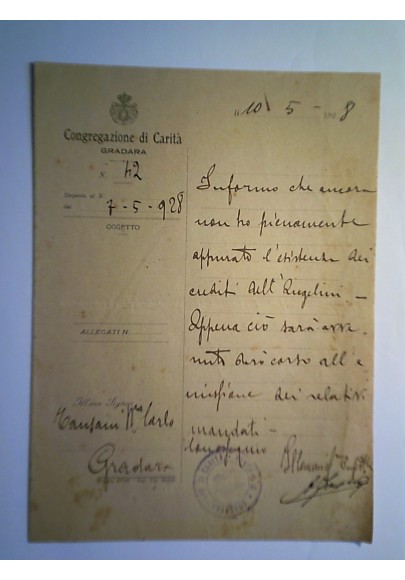 10 5 - 8
Congregazione di Carità
GRADARA
N. 42
Risposta al N.
del 7-5-928
OGGETTO
ALLEGATI N.
Informo che ancora
non ho pienamente
appurato l'esistenza dei
crediti dell'Angelini -
Appena ciò sarà avve
nuto darò corso all'e
missione dei relativi
mandati -
Con ossequio
Carlo
Gradara